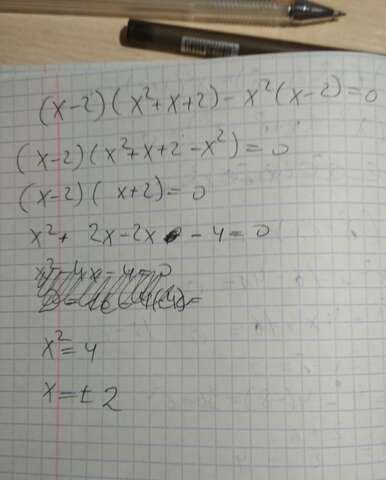 (x-2)(x²+x+2)-x²(x-2)=0
(x-2)(x²+x+2-x²)=0
(x-2)(x+2)=0
x²+2x-2x-4=0
x²=4
x=±2